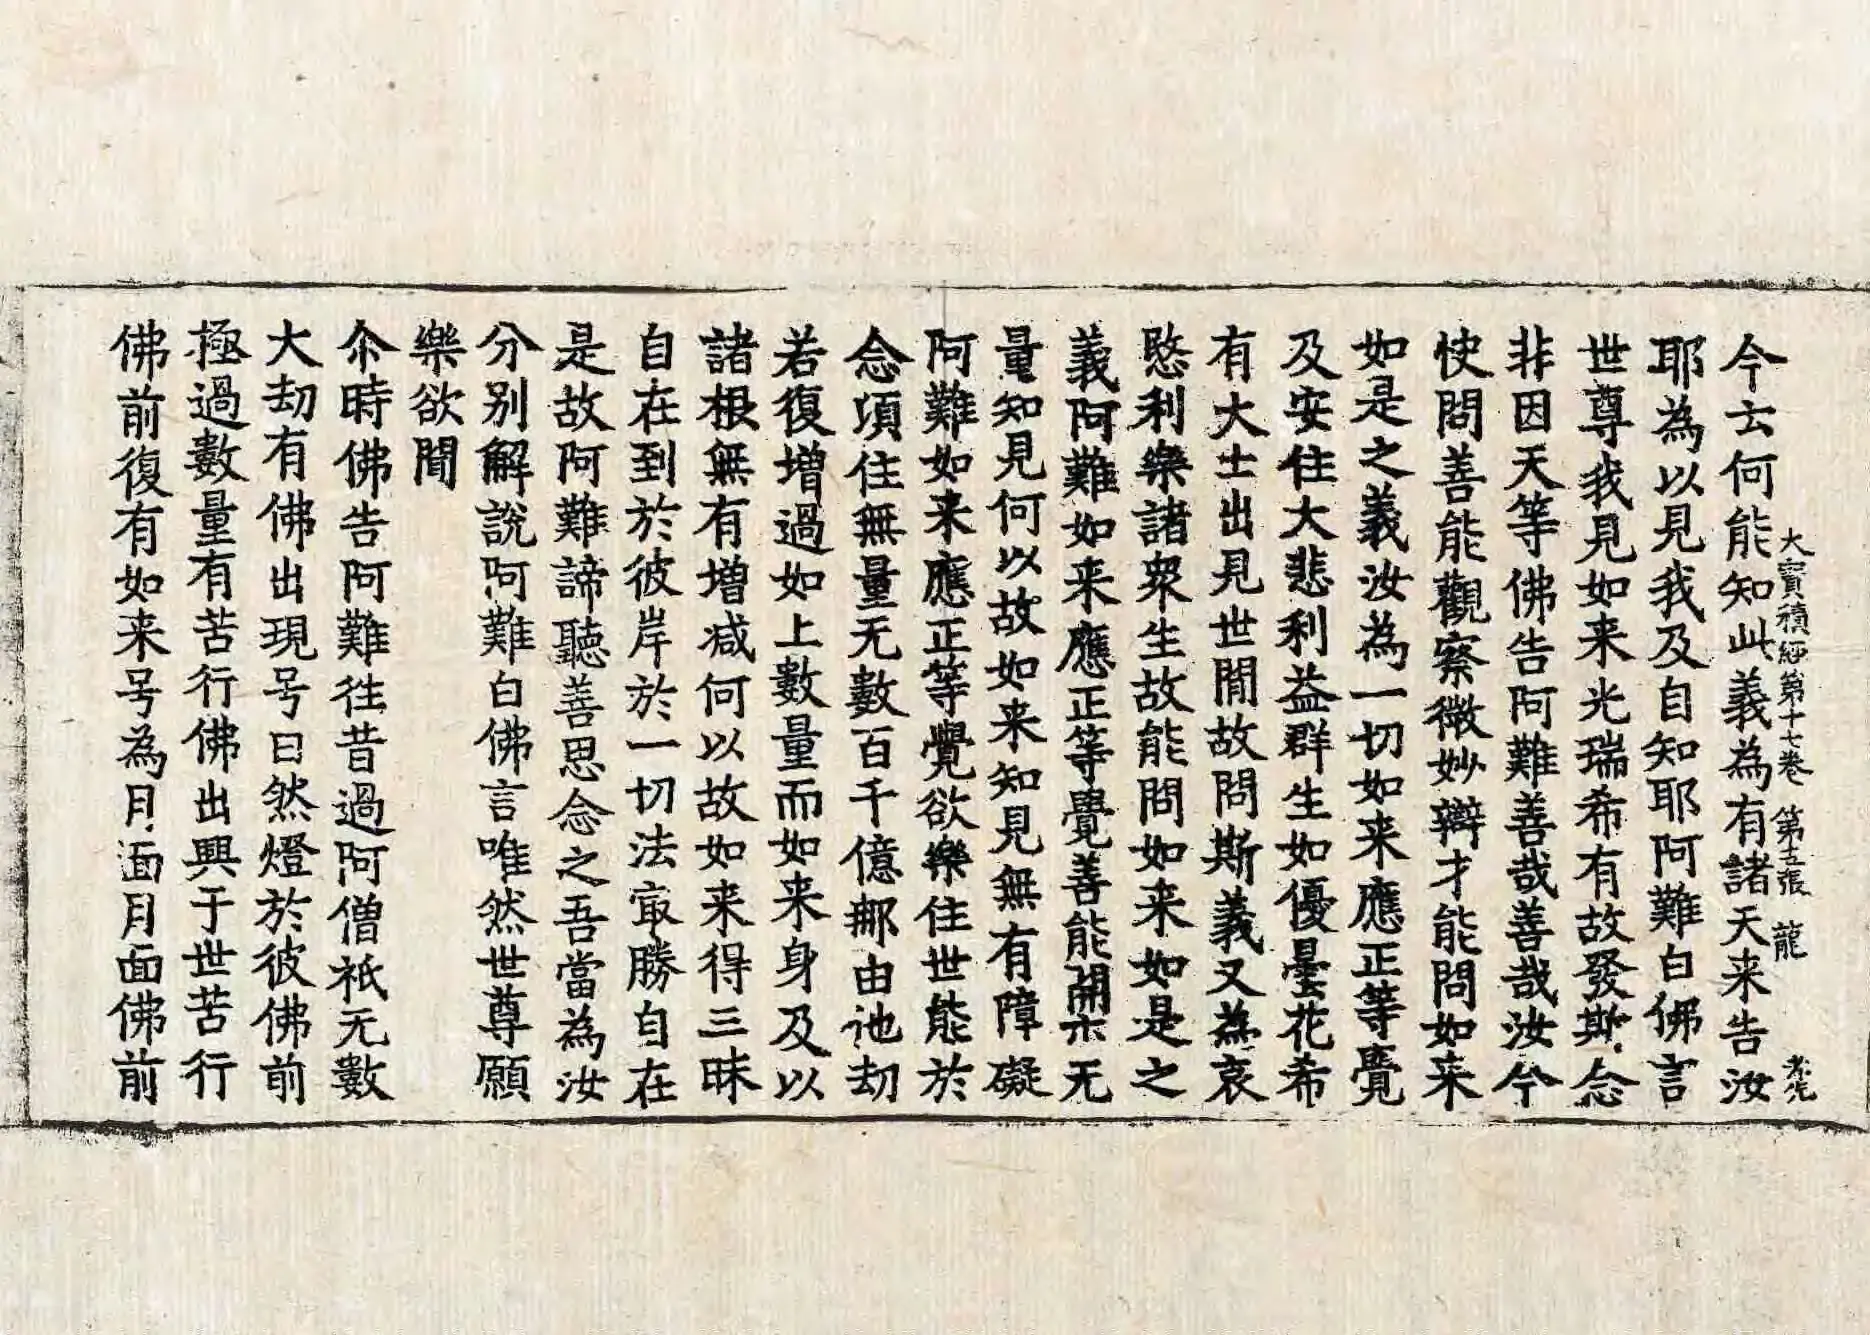 大寳積經第十七卷 第五張 龍
今云何能知此義為有諸天来告汝
耶為以見我及自知耶阿難白佛言
世尊我見如来光瑞希有故發斯念
非因天等佛告阿難善哉善哉汝今
快問善能觀察微妙辯才能問如来
如是之義汝為一切如来應正等覺
及安住大悲利益群生如優曇花希
有大士出見世間故問斯義又為哀
愍利樂諸衆生故能問如来如是之
義阿難如来應正等覺善能開示无
量知見何以故如来知見無有障礙
阿難如来應正等覺欲樂住世能於
念頃住無量无數百千億那由他劫
若復增過如上數量而如来身及以
諸根無有增减何以故如来得三昧
自在到於彼岸於一切法㝡勝自在
是故阿難諦聽善思念之吾當為汝
分别解說阿難白佛言唯然世尊願
樂欲聞
尒時佛告阿難往昔過阿僧祇无數
大劫有佛出現号曰然燈於彼佛前
極過數量有苦行佛出興于世苦行
佛前復有如来号為月面月面佛前